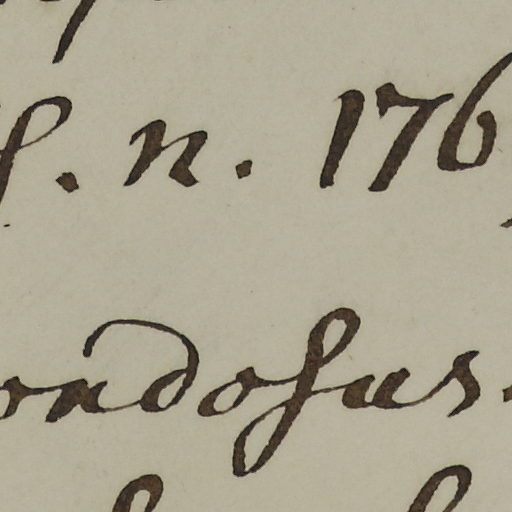 . n. 176
ondosus.